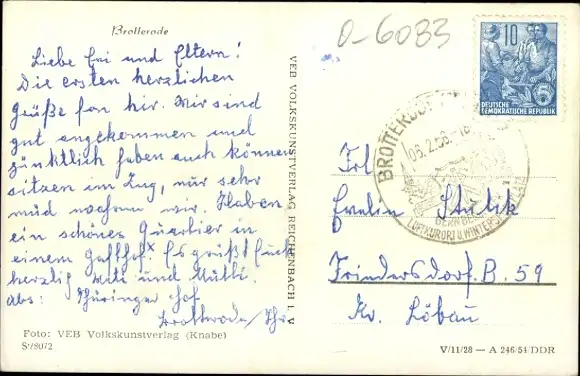 Brotterode
O-6083
Liebe Evi und Eltern!
Die ersten herzlichen
grüße fon hir. Wir sind
gut angekommen und
pünktlich haben auch können
sitzen im Zug, nur sehr
müd wahren wir. Haben
ein schönes Quartier in
einem Gasthof. Es grüßt Euch
herzlich und Mutti.
abs: Thüringer Hof
Brotterode/Thr.
Foto: VEB Volkskunstverlag (Knabe)
S7/8072
VEB VOLKSKUNSTVERLAG REICHENBACH I. V
10
DEUTSCHE
DEMOKRATISCHE REPUBLIK
BROTTERODE
LUFTKURORT U. WINTERSPORT
Frl
Evelin
Friedersdorf. B. 59
Kr. Löbau
V/11/28 — A 246/54/DDR